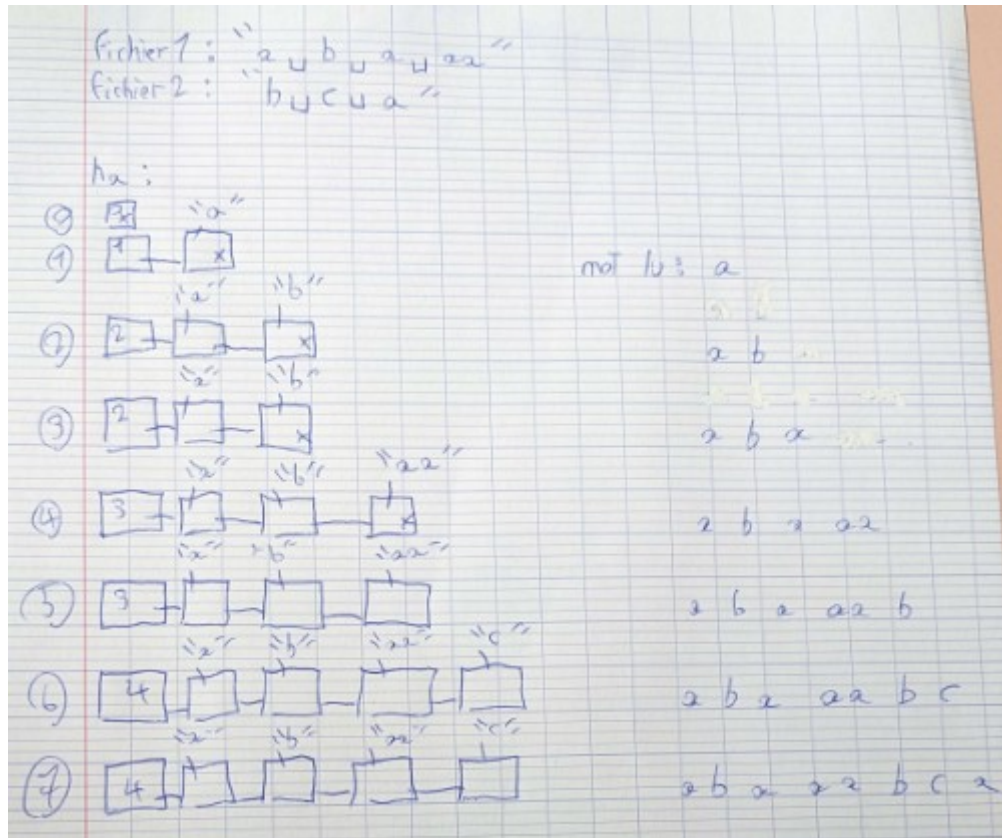 fichier 1 : "a ␣ b ␣ a ␣ aa"
fichier 2 : "b ␣ c ␣ a"
ha :
"a"
① 1 mot lu : a
"a" "b"
② 2 a b
"a" "b"
③ 2 a b a
"a" "b" "aa"
④ 3 a b a aa
"a" "b" "aa"
⑤ 3 a b a aa b
"a" "b" "aa" "c"
⑥ 4 a b a aa b c
"a" "b" "aa" "c"
⑦ 4 a b a aa b c a